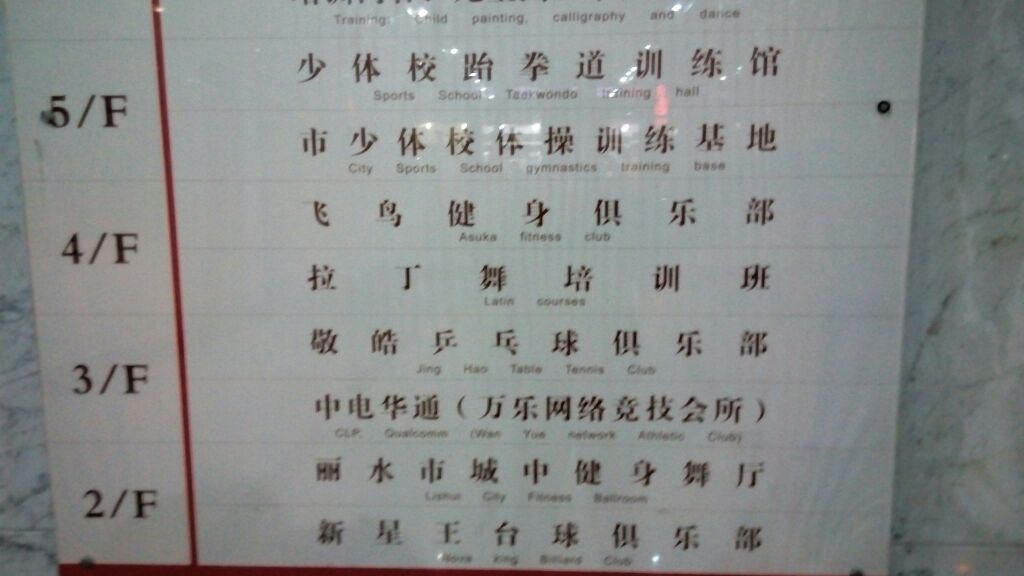 Training: Child painting, calligraphy and dance
5/F
少体校跆拳道训练馆
Sports School Taekwondo training hall
市少体校体操训练基地
City Sports School gymnastics training base
4/F
飞鸟健身俱乐部
Asuka fitness club
拉丁舞培训班
Latin courses
3/F
敬皓乒乓球俱乐部
Jing Hao Table Tennis Club
中电华通(万乐网络竞技会所)
CLP, Qualcomm (Wan Yue network Athletic Club)
2/F
丽水市城中健身舞厅
Lishui City Fitness Ballroom
新星王台球俱乐部
Nova king Billiard Club